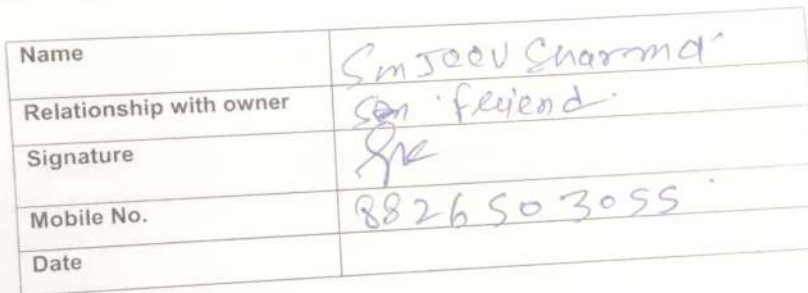 Name SmJeev Sharma
Relationship with owner friend.
Signature
Mobile No. 8826503055
Date